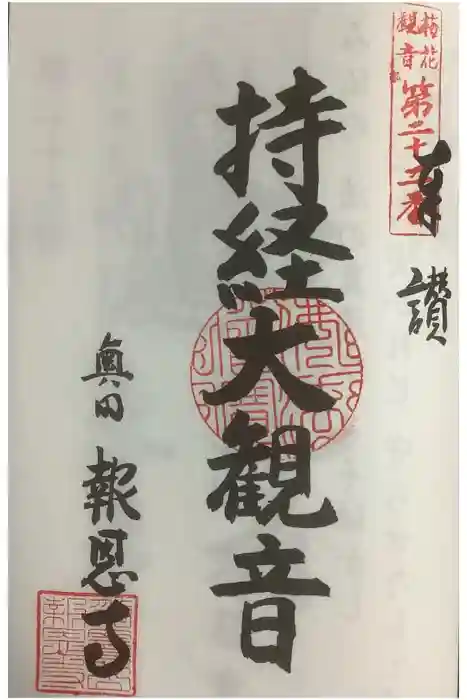 梅花
観音
第二十
奉讃
持経大観音
奥田 報恩寺